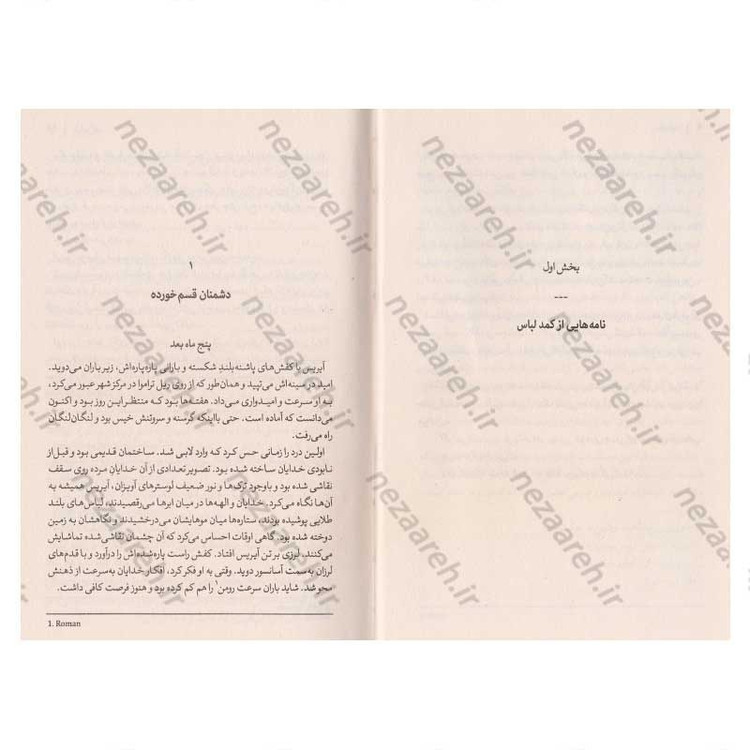 بخش اول
---
نامه‌هایی از کمد لباس
۱
دشمنان قسم خورده
پنج ماه بعد
آیریس با کفش‌های پاشنه‌بلند شکسته و بارانی پاره‌پاره‌اش، زیر باران می‌دوید.
امید در سینه‌اش می‌تپید و همان‌طور که از روی ریل تراموا در مرکز شهر عبور می‌کرد،
به او سرعت و امیدواری می‌داد. هفته‌ها بود که منتظر این روز بود و اکنون
می‌دانست که آماده است. حتی با اینکه گرسنه و سروتنش خیس بود و لنگان‌لنگان
راه می‌رفت.
اولین درد را زمانی حس کرد که وارد لابی شد. ساختمان قدیمی بود و قبل از
نابودی خدایان ساخته شده بود. تصویر تعدادی از آن خدایان مرده روی سقف
نقاشی شده بود و باوجود ترک‌ها و نور ضعیف لوسترهای آویزان، آیریس همیشه به
آن‌ها نگاه می‌کرد. خدایان و الهه‌ها در میان ابرها می‌رقصیدند، لباس‌های بلند
طلایی پوشیده بودند، ستاره‌ها میان موهایشان می‌درخشیدند و نگاهشان به زمین
دوخته شده بود. گاهی اوقات احساس می‌کرد که آن چشمان نقاشی‌شده تماشایش
می‌کنند. لرزی بر تن آیریس افتاد. کفش راست پاره‌شده‌اش را درآورد و با قدم‌های
لرزان به‌سمت آسانسور دوید. وقتی به او فکر کرد، افکار خدایان به‌سرعت از ذهنش
محو شد. شاید باران سرعت رومن۱ را هم کم کرده بود و هنوز فرصت کافی داشت.
1. Roman
nezaareh.ir
nezaareh.ir
nezaareh.ir
nezaareh.ir
nezaareh.ir
nezaareh.ir
nezaareh.ir
nezaareh.ir
nezaareh.ir